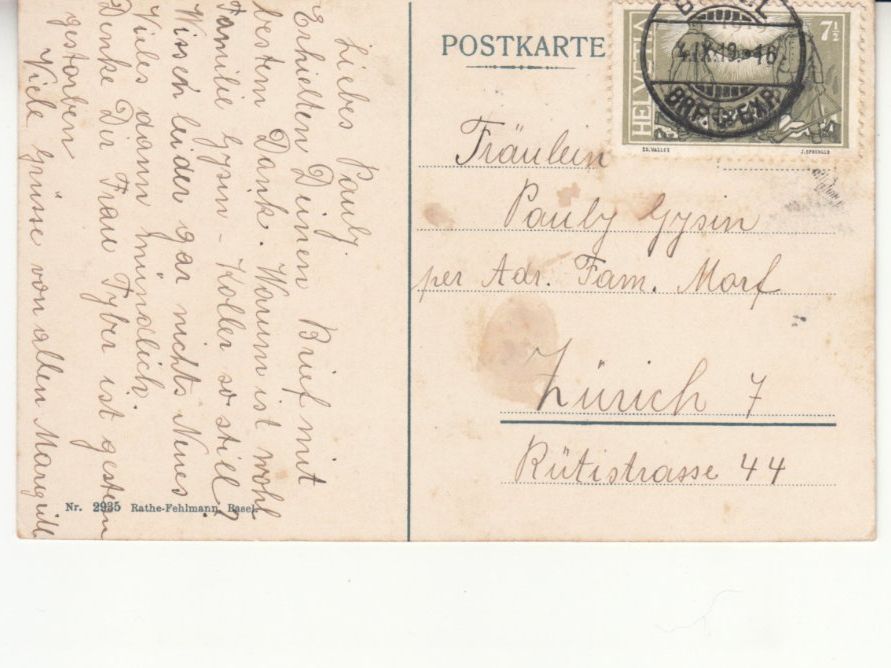 Liebes Pauly.
Erhielten Deinen Brief mit
bestem Dank. Warum ist wohl
Familie Gysin - Koller so still?
Wissen leider gar nichts Neues
Vieles dann mündlich.
Denke Dir Frau Fyber ist gestern
gestorben
Viele Grüsse von allen Margrit
Nr. 2935 Rathe-Fehlmann, Basel.
POSTKARTE
HELVETIA
7½
4.IX.19.-16
BRF. EXP.
Fräulein
Pauly Gysin
per Adr. Fam. Morf
Zürich 7
Rütistrasse 44